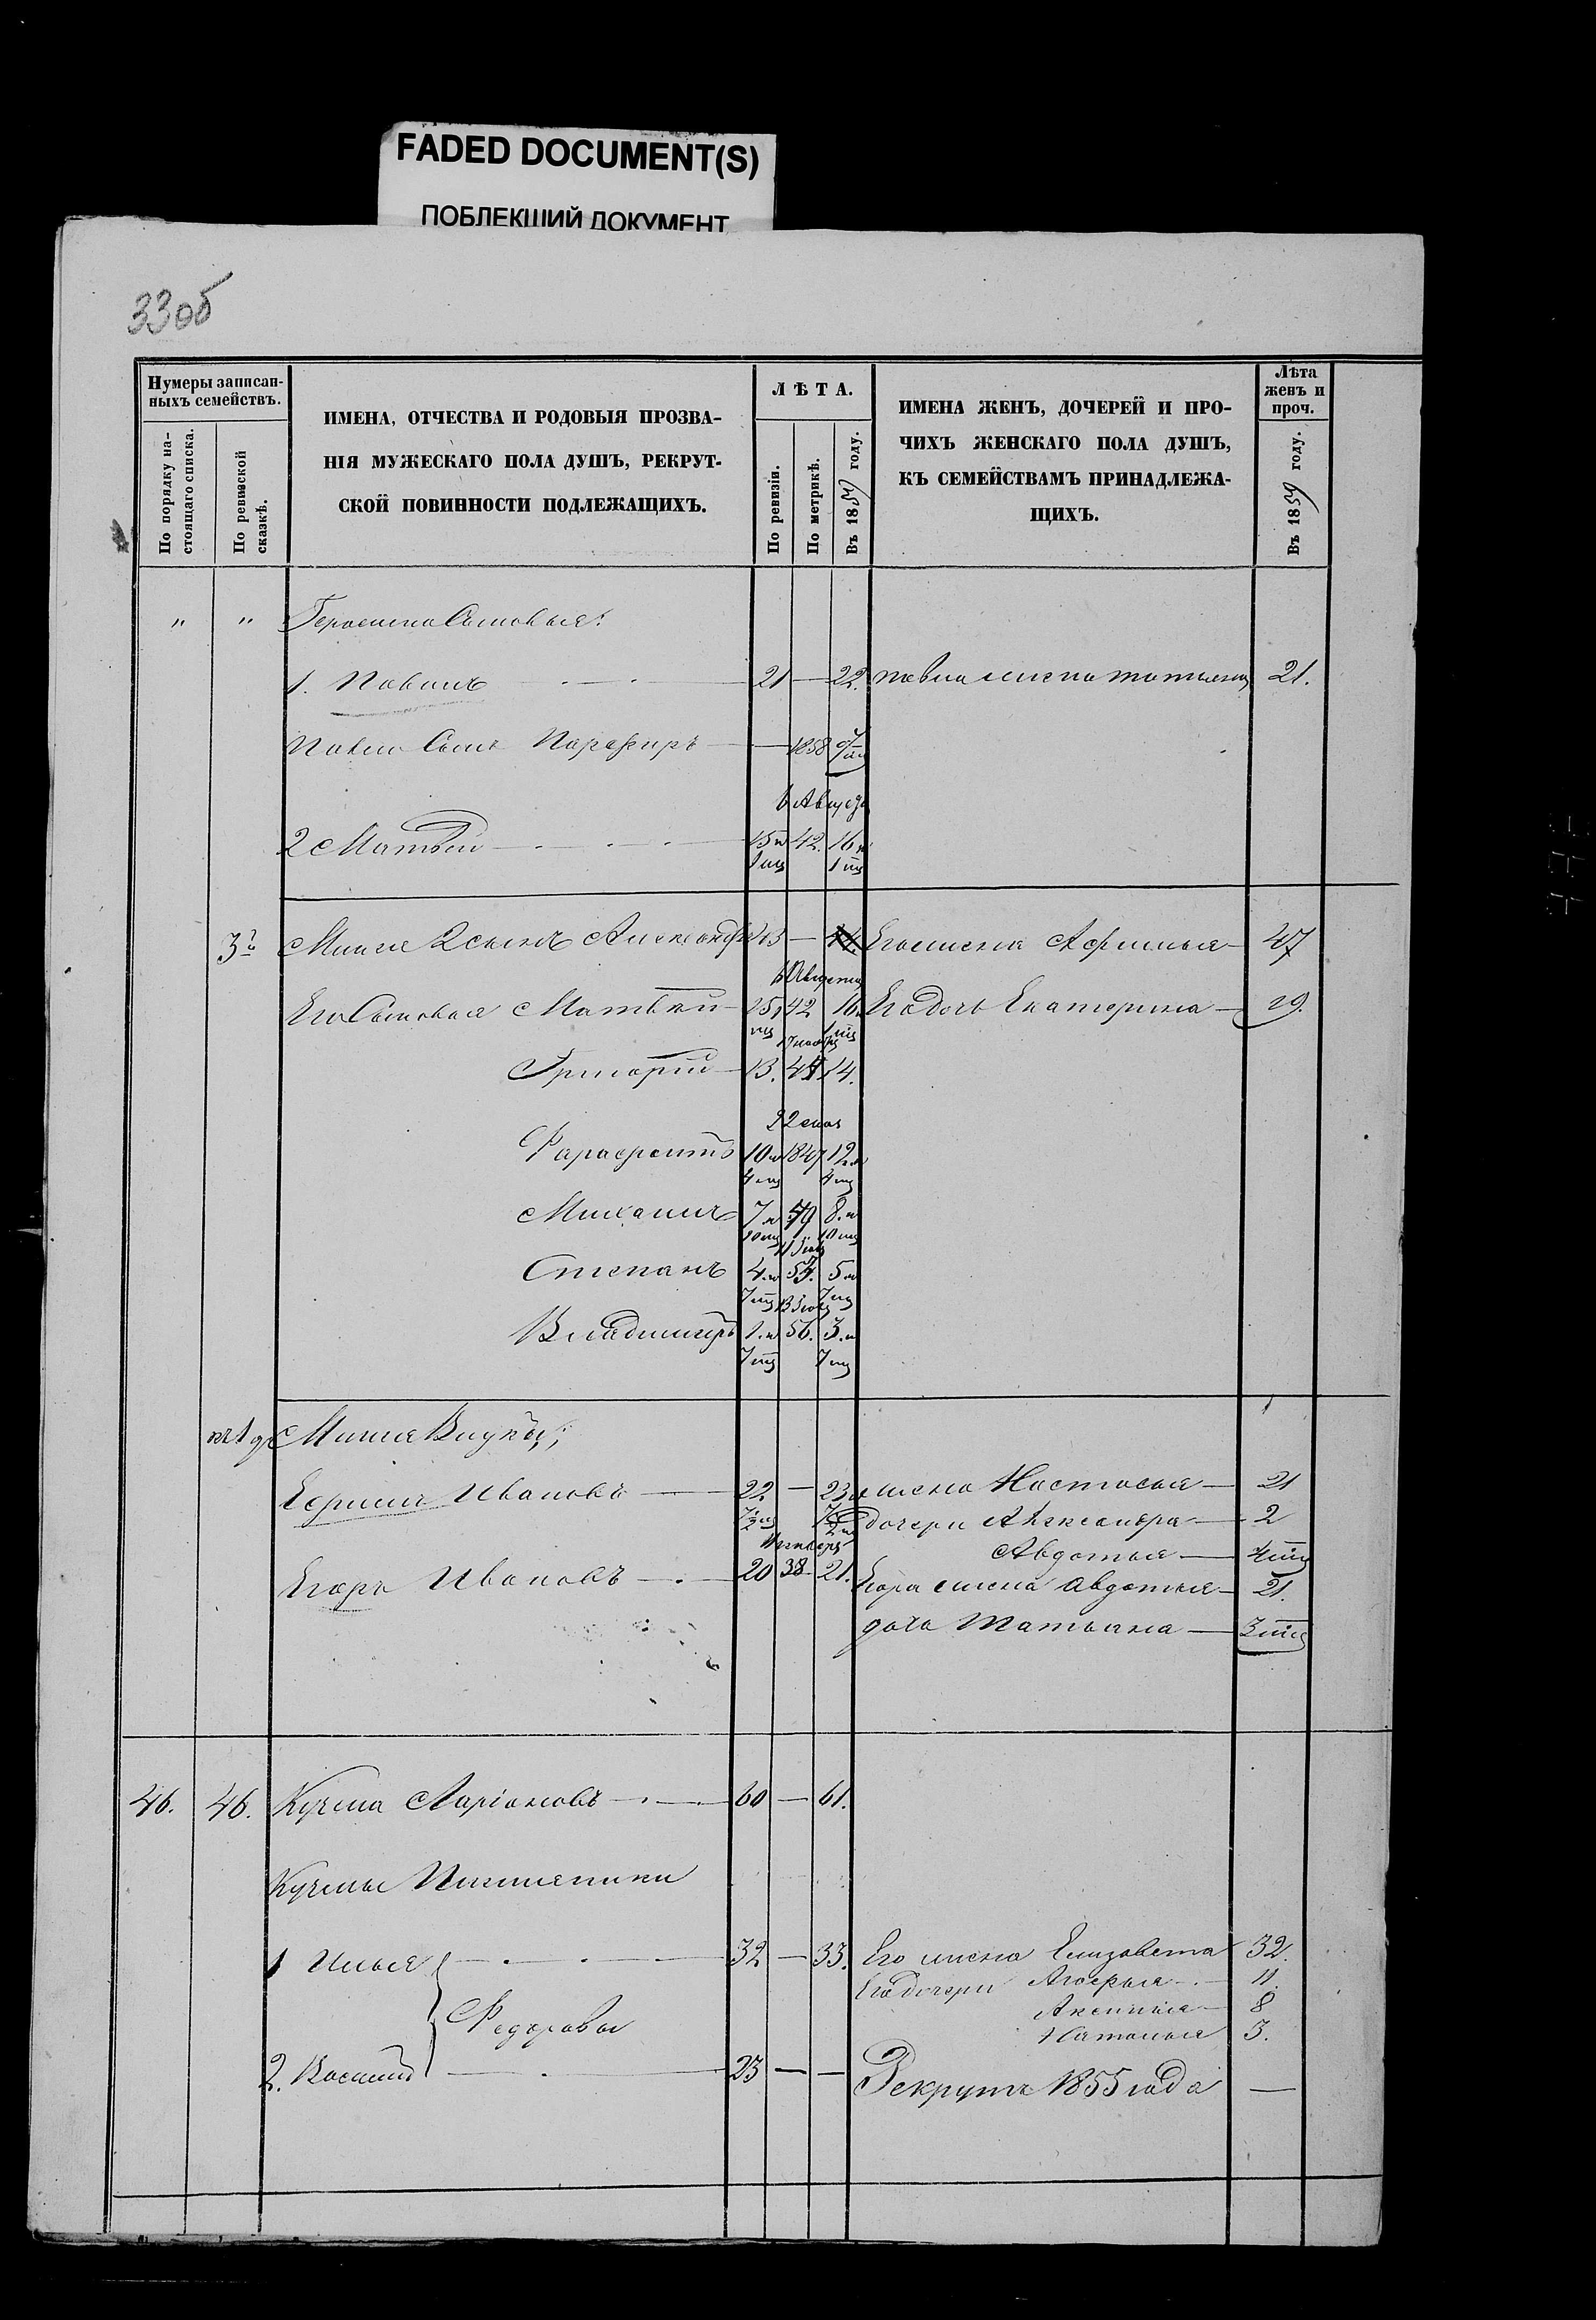 FADED DOCUMENT(S)
ПОБЛЕКШИЙ ДОКУМЕНТ
33об
Нумеры записан-
ныхъ семействъ.
По порядку на-
стоящаго списка.
По ревизской
сказкѣ.
ИМЕНА, ОТЧЕСТВА И РОДОВЫЯ ПРОЗВА-
НІЯ МУЖЕСКАГО ПОЛА ДУШЪ, РЕКРУТ-
СКОЙ ПОВИННОСТИ ПОДЛЕЖАЩИХЪ.
ЛѢТА.
По ревизіи.
По метрикѣ.
Въ 1859 году.
ИМЕНА ЖЕНЪ, ДОЧЕРЕЙ И ПРО-
ЧИХЪ ЖЕНСКАГО ПОЛА ДУШЪ,
КЪ СЕМЕЙСТВАМЪ ПРИНАДЛЕЖА-
ЩИХЪ.
Лѣта
женъ и
проч.
Въ 1859 году.
" " Герасима Сыновья:
1. Павелъ — 21 — 22. павла жена татьяна 21.
Павла Сынъ Парфиръ — 1858
6 Августа
2 Матвѣй — 15 42. 16
1 мц 1 мц
3й Миная 2 сынъ Александръ 43 — 44. Его жена Афимья — 47
6 Августа
Его Сыновья Матвѣй — 15 42 16 Его дочь Екатерина — 19.
Григорій — 13. 45 14.
22
Фарафонтъ 10 1847 12
4 мц 4 мц
Михаилъ 7 49 8.
10 мц 10 мц
Степанъ 4. 53. 5
7 мц 7 мц
Владимиръ 1. 56. 3.
7 мц 7 мц
Миная Внуки;
Ефимъ Ивановъ — 22 — 23 жена Настасья — 21
дочери Александра — 2
Авдотья — 4 мц
Егоръ Ивановъ — 20 38 21. Егора жена Авдотья — 21.
дочь Татьяна — 3 мц
46. 46. Кузма Ларіоновъ — 60 — 61.
Кузмы Племяники
1 Илья — 32 — 33. Его жена Елизавета 32.
Его дочери Агафья — 11.
Аксинья — 8
Федоровы
Наталья 3.
2. Василій — 23 — — Рекрутъ 1855 года —